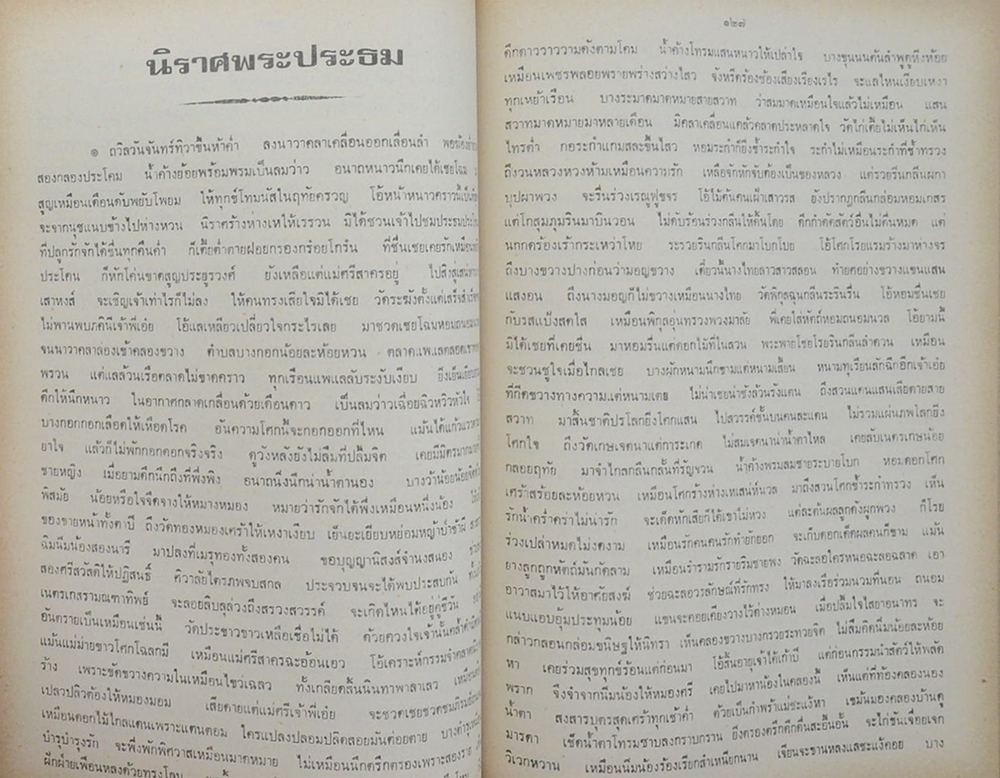 นิราศพระประธม
๑ ถวิลวันจันทร์ทิวาขึ้นห้าค่ำ ลงนาวาคลาเคลื่อนออกเลื่อนลำ พอ
สองกลองประโคม น้ำค้างย้อยพร้อมพรมเป็นลมว่าว อนาถหนาวนึกเคยได้เชยโฉม
สูญเหมือนเดือนดับพยับโพยม ให้ทุกข์โทมนัสในฤทัยครวญ โอ้หน้าหนาวคราวนี้เป็น
จะจากนุชแนบข้างไปห่างหวน นิราศร้างห่างเหให้เรรวน มิได้ชวนเจ้าไปชมประธม
ที่ปลูกรักจักได้ชื่นทุกคืนค่ำ ก็เตี้ยต่ำตายฝอยกรองกร๋อยโกร๋น ที่ชื่นเชยเคยรักเหมือน
ประโคน ก็หักโค่นขาดสูญประยูรวงศ์ ยังเหลือแต่แม่ศรีสาครอยู่ ไปสิงสู่
เสาหงส์ จะเชิญเจ้าเท่าไรก็ไม่ลง ให้คนทรงเสียใจมิได้เชย วัดระฆังตั้งแต่เสร็จสำเร็จ
ไม่พานพบภคินีเจ้าพี่เอ๋ย โอ้แลเหลียวเปลี่ยวใจกระไรเลย มาชวดเชยโฉมหอมถนอม
จนนาวาคลาล่องเข้าคลองขวาง ตำบลบางกอกน้อยละห้อยหวน ตลาดแพแลตลอดเรา
พรวน แต่แลล้วนเรือตลาดไม่ขาดคราว ทุกเรือนแพแลลับระงับเงียบ ยิ่งเย็นเยียบ
ดึกให้นึกหนาว ในอากาศกลาดเกลื่อนด้วยเดือนดาว เป็นลมว่าวเฉื่อยฉิวหวิวหัวใจ
บางกอกกอกเลือดให้เหือดโรค อันความโศกนี้จะกอกออกที่ไหน แม้นได้แก้ว
ยาใจ แล้วก็ไม่พักกอกดอกจริงจริง ดูวังหลังยังไม่ลืมที่ปลื้มจิต เคยมีมิตรมาก
ชายหญิง เมื่อยามดึกนึกถึงที่พึ่งพิง อนาถนิ่งนึกน่าน้ำตานอง บางว้าน้อยน้อยจิต
พิสมัย น้อยหรือใจจืดจางให้หมางหมอง หมายว่ารักจักได้พึ่งเหมือนหนึ่งน้อง
ของขายหน้าทั้งตาปี ถึงวัดทองหมองเศร้าให้เหงาเงียบ เย็นยะเยียบหย่อมหญ้าป่าช้าผี
ฉิมนิ่มน้องสองนารี มาปลงที่เมรุทองทั้งสองคน ขอบุญญานิสงส์จำนงสนอง
สองศรีสวัสดิ์ให้ปฏิสนธิ์ ศิวาลัยไตรภพจบสกล ประจวบจนจะได้พบประสบกัน
เนตรเกสรามณฑาทิพย์ จะลอยลิบลุล่วงถึงสรวงสวรรค์ จะเกิดไหนได้อยู่คู่ชีวัน
อันตรายเป็นเหมือนเช่นนี้ วัดประขาวขาวเหลือเชื่อไม่ได้ ด้วยดวงใจเจ้านั้น
แม้นแม่ม่ายขาวโศกโฉลกมี เหมือนแม่ศรีสาครฉะอ้อนเอว โอ้เคราะห์กรรมจำคลาดนิราศ
ร้าง เพราะขัดขวางความในเหมือนไขว่เฉลว ทั้งเกลียดลิ้นนินทาพาลาเลว
เปลวปลิวต้องให้หมองมอม เสียดายแต่แม่ศรีเจ้าพี่เอ๋ย จะชวดเชยชวดชม
เหมือนดอกไม้ไกลแดนเพราะแตนตอม ใครแปลงปลอมปลิดสอยมันต่อยตาย บางตำรุ
บำรุบำรุงรัก จะพึ่งพักพิศวาสเหมือนมาดหมาย ไม่เหมือนนึกตรึกตรองเพราะสองราย
ฝักฝ่ายเฟือนหลงด้วยทรงโฉม
๑๒๗
ดึกดาววาววามดังตามโคม น้ำค้างโทรมแสนหนาวให้เปล่าใจ บางขุนนนต้นลำพูดูหิ่งห้อย
เหมือนเพชรพลอยพรายพร่างสว่างไสว จังหรีดร้องซ้องเสียงเรียงเรไร จะแลไหนเงียบเหงา
ทุกเหย้าเรือน บางระมาดมาดหมายสายสวาท ว่าสมมาดเหมือนใจแล้วไม่เหมือน แสน
สวาทมาดหมายมาหลายเดือน มีคลาเคลื่อนแคล้วคลาดประหลาดใจ วัดไก่เตี้ยไม่เห็นไก่เห็น
ไทรต่ำ กอระกำแกมสละขึ้นไสว หอมระกำก็ยิ่งช้ำระกำใจ ระกำไม่เหมือนระกำที่ช้ำทรวง
ถึงวนหลวงหวงห้ามเหมือนความรัก เหลือจักหักจับต้องเป็นของหลวง แต่รวยรื่นกลิ่นผกา
บุปผาพวง จะรื่นร่วงเรณูฟูขจร โอ้ไม้ต้นคนเฝ้าเสาวรส ยังปรากฏกลิ่นกล่อมหอมเกสร
แต่โกสุมภุมรินมาบินวอน ไม่ดับร้อนร่วงกลิ่นให้ดิ้นโดย ดึกกำดัดสัตว์อื่นไม่ตื่นหมด แต่
นกกดร้องเร้ากระเหว่าโหย ระรวยรินกลิ่นโศกมาโบกโบย โอ้โศกโรยแรมร้างมาห่างจร
ถึงบางขวางปางก่อนว่ามอญขวาง เดี๋ยวนี้นางไทยลาวสาวสลอน ทำยศอย่างขวางแขนแสน
แสงอน ถึงนางมอญก็ไม่ขวางเหมือนนางไทย วัดพิกุลฉุนกลิ่นระรินรื่น โอ้หอมชื่นเชย
กับรสแป้งสดใส เหมือนพิกุลอุ่นทรวงพวงมาลัย พี่เคยใส่หัตถ์หอมถนอมนวล โอ้ยามนี้
มิได้เชยที่เคยชื่น มาหอมรื่นแต่ดอกไม้ที่ในสวน พระพายโชยโรยรินกลิ่นลำดวน เหมือน
จะชวนชูใจเมื่อไกลเชย บางผักหนามนึกขามแต่หนามเสี้ยน หนามทุเรียนลักฉีกอีกเจ้าเอ๋ย
ที่กีดขวางทางความแต่หนามเตย ไม่น่าเชยน่าชังล้วนรังแตน ถึงสวนแดนแสนเสียดายสาย
สวาท มาสิ้นชาติปรโลกยิ่งโศกแสน ไปสวรรค์ชั้นบนคนละแดน ไม่รวมแผ่นภพโลกยิ่ง
โศกใจ ถึงวัดเกษเจตนาแต่การะเกด ไม่สมเจตนาน่าน้ำตาไหล เคยลับเนตรเกษน้อย
กลอยฤทัย มาจำไกลกลืนกลั้นที่รัญจวน น้ำค้างพรมลมชายระบายโบก หอมดอกโศก
เศร้าสร้อยละห้อยหวน เหมือนโศกร้างห่างเหเสน่ห์นวล มาถึงสวนโศกช้ำระกำทรวง เห็น
รักน้ำคร่ำคร่าไม่น่ารัก จะเด็ดหักเสียก็ได้เขาไม่หวง แต่ละต้นผลลูกดังผูกพวง ก็โรย
ร่วงเปล่าหมดไม่งดงาม เหมือนรักคนคนรักทำยักยอก จะเก็บดอกเด็ดผลคนก็ขาม แม้น
ยางถูกถูกหัตถ์มันกัดลาม เหมือนรำรามรักรายริมชายพง วัดฉะลอใครหนอฉะลอฉลาด เอา
อาวาสมาไว้ให้อาศัยสงฆ์ ช่วยฉะลอวรลักษณ์ที่รักทรง ให้มาลงเรือร่วมนวมที่นอน ถนอม
แนบแอบอุ้มประทุมน้อย แขนจะคอยเคียงวางไว้ต่างหมอน เมื่อปลื้มใจไสยาอนาทร จะ
กล่าวกลอนกล่อมขนิษฐให้นิทรา เห็นคลองขวางบางกรวยระทวยจิต ไม่ลืมคิดนิ่มน้อยละห้อย
หา เคยร่วมสุขทุกข์ร้อนแต่ก่อนมา โอ้สิ้นอายุเจ้าได้เก้าปี แต่ก่อนกรรมนำสัตว์ให้พลัด
พราก จึงจำจากนิ่มน้องให้หมองศรี เคยไปมาหาน้องในคลองนี้ เห็นแต่ที่ท้องคลองนอง
น้ำตา สงสารบุตรสุดเศร้าทุกเช้าค่ำ ด้วยเป็นกำพร้าแม่ชะแง้หา เขม้นมองคลองบ้านดู
มารดา เช็ดน้ำตาโทรมซาบลงกราบกราน ยิ่งตรองตรึกดึกดื่นสะอื้นอั้น จะไก่ขันเจื่อยแจก
วิเวกหวาน เหมือนนิ่มน้องร้องเรียกสำเหนียกนาน เจียนจะขานหลงแลชะแง้คอย บาง